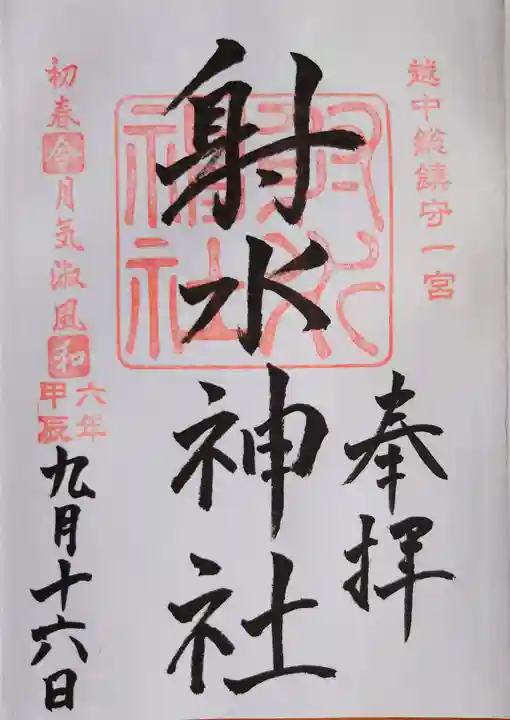 越中総鎮守一宮
奉拝
射水神社
射水神社
初春令月気淑風和
六年
甲辰
九月十六日